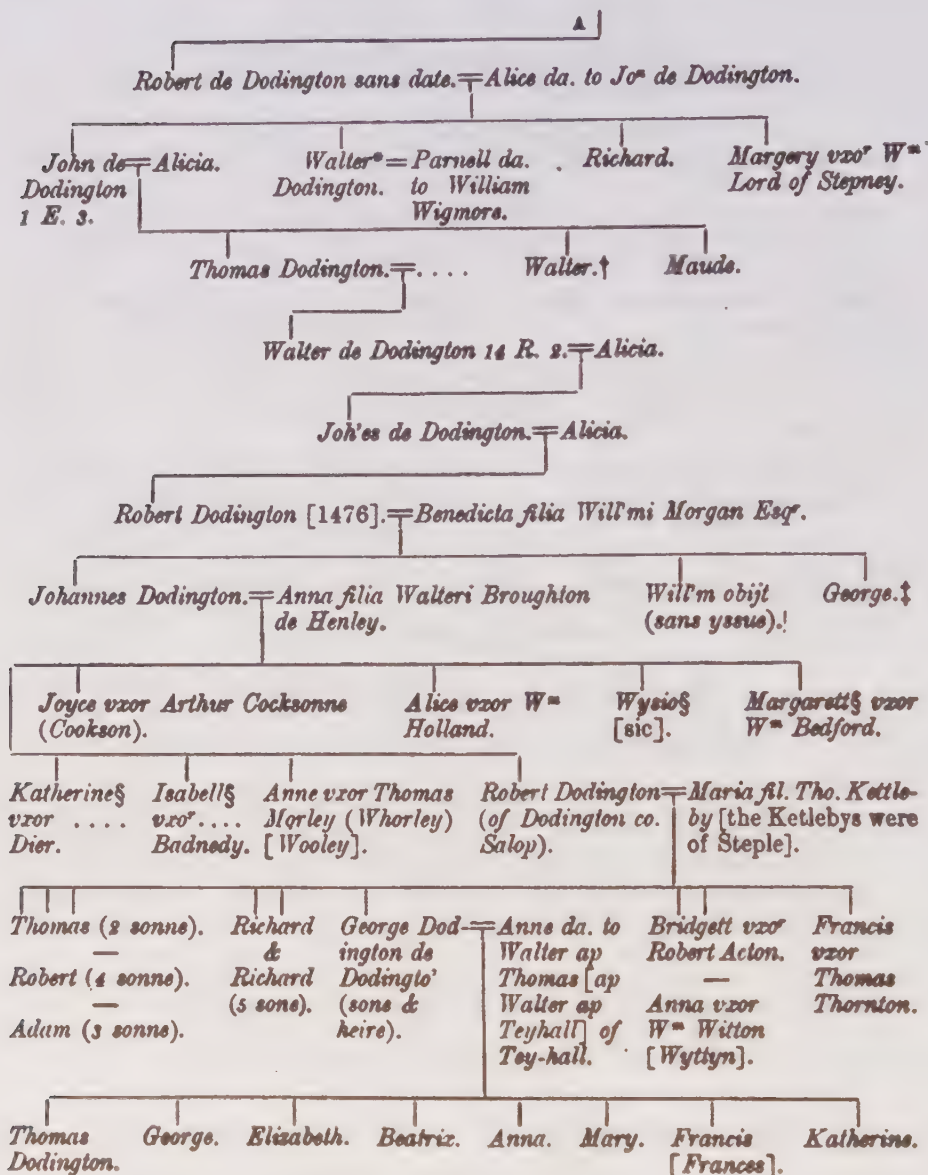 A
Robert de Dodington sans date. = Alice da. to Joⁿ de Dodington.
John de = Alicia.
Dodington
1 E. 3.
Walter* = Parnell da.
Dodington. to William
Wigmore.
Richard.
Margery vxoʳ Wᵐ
Lord of Stepney.
Thomas Dodington. = . . . .
Walter.†
Maude.
Walter de Dodington 14 R. 2. = Alicia.
Joh'es de Dodington. = Alicia.
Robert Dodington [1476]. = Benedicta filia Will'mi Morgan Esqʳ.
Johannes Dodington. = Anna filia Walteri Broughton
de Henley.
Will'm obijt
(sans yssue).!
George.‡
Joyce vxor Arthur Cocksonne
(Cookson).
Alice vxor Wᵐ
Holland.
Wysio§
[sic].
Margarett§ vxor
Wᵐ Bedford.
Katherine§
vxor . . . .
Dier.
Isabell§
vxoʳ . . . .
Badnedy.
Anne vxor Thomas
Morley (Whorley)
[Wooley].
Robert Dodington = Maria fil. Tho. Kettle-
(of Dodington co. by [the Ketlebys were
Salop). of Steple].
Thomas (2 sonne).
—
Robert (4 sonne).
—
Adam (3 sonne).
Richard
&
Richard
(5 sone).
George Dod- =
ington de
Dodingto'
(sone &
heire).
Anne da. to
Walter ap
Thomas [ap
Walter ap
Teyhall] of
Tey-hall.
Bridgett vxoʳ
Robert Acton.
—
Anna vxor
Wᵐ Witton
[Wyttyn].
Francis
vxor
Thomas
Thornton.
Thomas
Dodington.
George.
Elizabeth.
Beatrix.
Anna.
Mary.
Francis
[Frances].
Katherine.